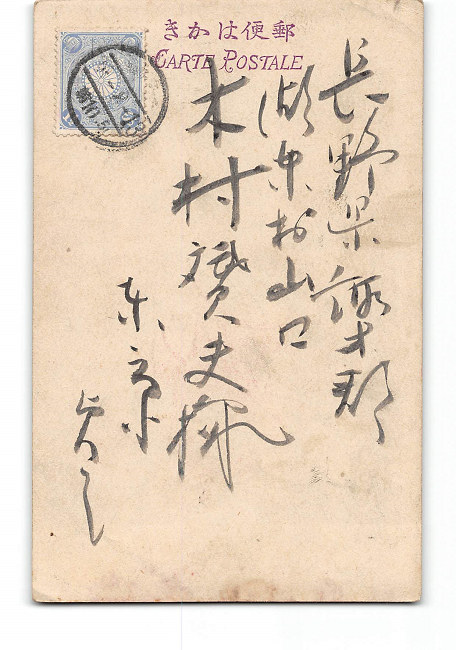 郵便はかき
CARTE POSTALE
長野県諏訪郡
湖東村山口
木村夫様
東京